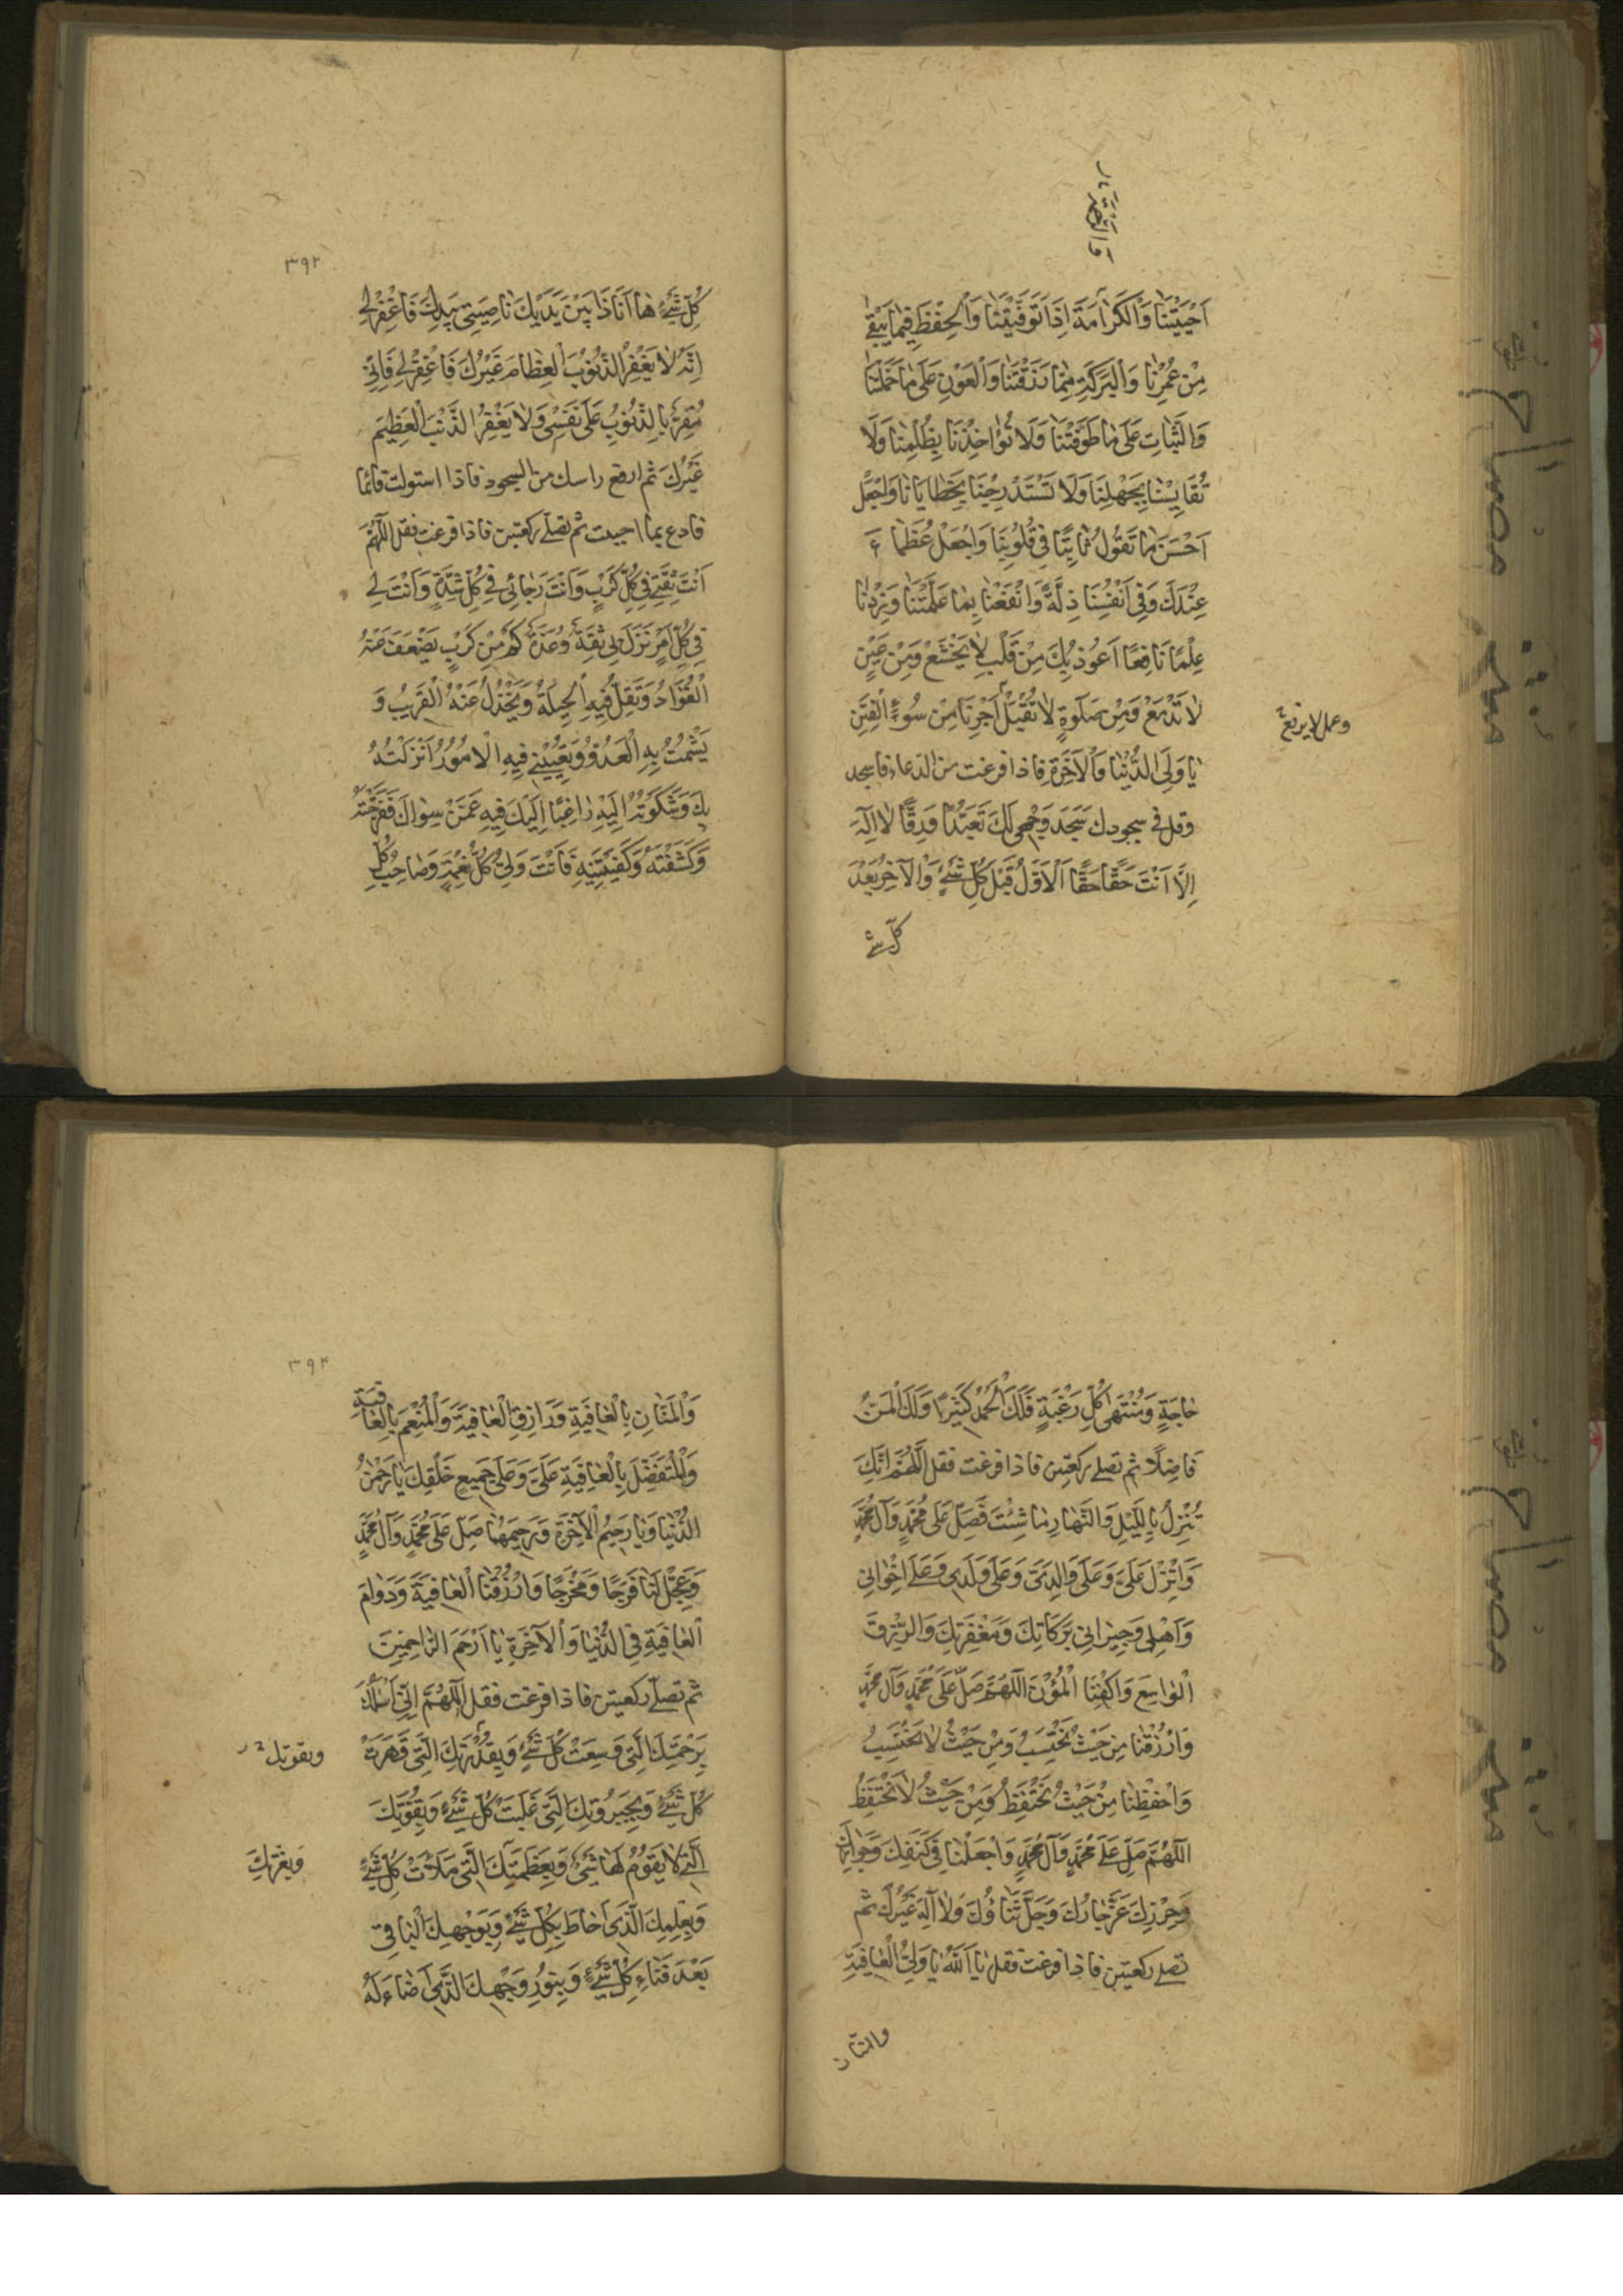 اَحْيَيْتَنَا وَالْكَرَامَةَ اِذَا تَوَفَّيْتَنَا وَالْحِفْظَ فِيمَا يَبْقَى
مِنْ عُمُرِنَا وَالْبَرَكَةِ مِمَّا رَزَقْتَنَا وَالْعَوْنِ عَلَى مَا حَمَّلْتَنَا
وَالثَّبَاتِ عَلَى مَا طَوَّقْتَنَا وَلَا تُؤَاخِذْنَا بِظُلْمِنَا وَلَا
تُقَايِسْنَا بِجَهْلِنَا وَلَا تَسْتَدْرِجْنَا بِخَطَايَانَا وَاجْعَلْ
اَحْسَنَ مَا نَقُولُ ثَابِتًا فِي قُلُوبِنَا وَاجْعَلْ عُظَمَاءَ
عِنْدَكَ وَفِي اَنْفُسِنَا ذِلَّةً وَانْفَعْنَا بِمَا عَلَّمْتَنَا وَزِدْنَا
عِلْمًا نَافِعًا اَعُوذُ بِكَ مِنْ قَلْبٍ لَا يَخْشَعُ وَمِنْ عَيْنٍ
لَا تَدْمَعُ وَمِنْ صَلَوةٍ لَا تُقْبَلُ اَجِرْنَا مِنْ سُوءِ الْفِتَنِ
وعمل لا يرفع
يَا وَلِيَّ الدُّنْيَا وَالْآخِرَةِ فاذا فرغت من الدعاء فاسجد
وقل في سجودك سَجَدَ وَجْهِي لَكَ تَعَبُّدًا وَرِقًّا لَا اِلَهَ
اِلَّا اَنْتَ حَقًّا حَقًّا اَلْاَوَّلُ قَبْلَ كُلِّ شَيْءٍ وَالْآخِرُ بَعْدَ
كل شئ
٣٩٢
كُلِّ شَيْءٍ هَا اَنَا ذَا بَيْنَ يَدَيْكَ نَاصِيَتِي بِيَدِكَ فَاغْفِرْ لِي
اِنَّهُ لَا يَغْفِرُ الذُّنُوبَ الْعِظَامَ غَيْرُكَ فَاغْفِرْ لِي فَاِنِّي
مُقِرٌّ بِالذُّنُوبِ عَلَى نَفْسِي وَلَا يَغْفِرُ الذَّنْبَ الْعَظِيمَ
غَيْرُكَ ثم ارفع راسك من السجود فاذا استويت قائما
فادع بما احببت ثم تصلى ركعتين فاذا فرغت فقل اَللّٰهُمَّ
اَنْتَ ثِقَتِي فِي كُلِّ كَرْبٍ وَاَنْتَ رَجَائِي فِي كُلِّ شِدَّةٍ وَاَنْتَ لِي
فِي كُلِّ اَمْرٍ نَزَلَ بِي ثِقَةٌ وَعُدَّةٌ كَمْ مِنْ كَرْبٍ يَضْعُفُ عَنْهُ
الْفُؤَادُ وَتَقِلُّ فِيهِ الْحِيلَةُ وَيَخْذُلُ عَنْهُ الْقَرِيبُ وَ
يَشْمُتُ بِهِ الْعَدُوُّ وَتُعْيِيْنِي فِيهِ الْاُمُورُ اَنْزَلْتُهُ
بِكَ وَشَكَوْتُهُ اِلَيْكَ رَاغِبًا اِلَيْكَ فِيهِ عَمَّنْ سِوَاكَ فَفَرَّجْتَهُ
وَكَشَفْتَهُ وَكَفَيْتَنِيهِ فَاَنْتَ وَلِيُّ كُلِّ نِعْمَةٍ وَصَاحِبُ كُلِّ
حَاجَةٍ وَمُنْتَهَى كُلِّ رَغْبَةٍ فَلَكَ الْحَمْدُ كَثِيرًا وَلَكَ الْمَنُّ
فَاضِلًا ثم تصلى ركعتين فاذا فرغت فقل اَللّٰهُمَّ اِنَّكَ
تُنْزِلُ بِاللَّيْلِ وَالنَّهَارِ مَا شِئْتَ فَصَلِّ عَلَى مُحَمَّدٍ وَآلِ مُحَمَّدٍ
وَاَنْزِلْ عَلَيَّ وَعَلَى وَالِدَيَّ وَعَلَى وَلَدِي وَعَلَى اِخْوَانِي
وَاَهْلِي وَجِيرَانِي بَرَكَاتِكَ وَمَغْفِرَتَكَ وَالرِّزْقَ
الْوَاسِعَ وَاكْفِنَا الْمُؤَنَ اَللّٰهُمَّ صَلِّ عَلَى مُحَمَّدٍ وَآلِ مُحَمَّدٍ
وَارْزُقْنَا مِنْ حَيْثُ نَحْتَسِبُ وَمِنْ حَيْثُ لَا نَحْتَسِبُ
وَاحْفَظْنَا مِنْ حَيْثُ نَحْتَفِظُ وَمِنْ حَيْثُ لَا نَحْتَفِظُ
اَللّٰهُمَّ صَلِّ عَلَى مُحَمَّدٍ وَآلِ مُحَمَّدٍ وَاجْعَلْنَا فِي كَنَفِكَ وَجِوَارِكَ
وَحِرْزِكَ عَزَّ جَارُكَ وَجَلَّ ثَنَاؤُكَ وَلَا اِلَهَ غَيْرُكَ ثم
تصلى ركعتين فاذا فرغت فقل يَا اَللّٰهُ يَا وَلِيَّ الْعَافِيَةِ
والمنان
٣٩٣
وَالْمَنَّانِ بِالْعَافِيَةِ وَرَازِقِ الْعَافِيَةِ وَالْمُنْعِمَ بِالْعَافِيَةِ
وَالْمُتَفَضِّلَ بِالْعَافِيَةِ عَلَيَّ وَعَلَى جَمِيعِ خَلْقِكَ يَا رَحْمٰنَ
الدُّنْيَا وَيَا رَحِيمَ الْآخِرَةِ وَرَحِيمَهُمَا صَلِّ عَلَى مُحَمَّدٍ وَآلِ مُحَمَّدٍ
وَعَجِّلْ لَنَا فَرَجًا وَمَخْرَجًا وَارْزُقْنَا الْعَافِيَةَ وَدَوَامَ
الْعَافِيَةِ فِي الدُّنْيَا وَالْآخِرَةِ يَا اَرْحَمَ الرَّاحِمِينَ
ثم تصلى ركعتين فاذا فرغت فقل اَللّٰهُمَّ اِنِّي اَسْأَلُكَ
بِرَحْمَتِكَ الَّتِي وَسِعَتْ كُلَّ شَيْءٍ وَبِقُدْرَتِكَ الَّتِي قَهَرَتْ
وبقوتك
كُلَّ شَيْءٍ وَبِجَبَرُوتِكَ الَّتِي غَلَبَتْ كُلَّ شَيْءٍ وَبِقُوَّتِكَ
الَّتِي لَا يَقُومُ لَهَا شَيْءٌ وَبِعَظَمَتِكَ الَّتِي مَلَأَتْ كُلَّ شَيْءٍ
وَبِعِزَّتِكَ
وَبِعِلْمِكَ الَّذِي اَحَاطَ بِكُلِّ شَيْءٍ وَبِوَجْهِكَ الْبَاقِي
بَعْدَ فَنَاءِ كُلِّ شَيْءٍ وَبِنُورِ وَجْهِكَ الَّذِي اَضَاءَ لَهُ